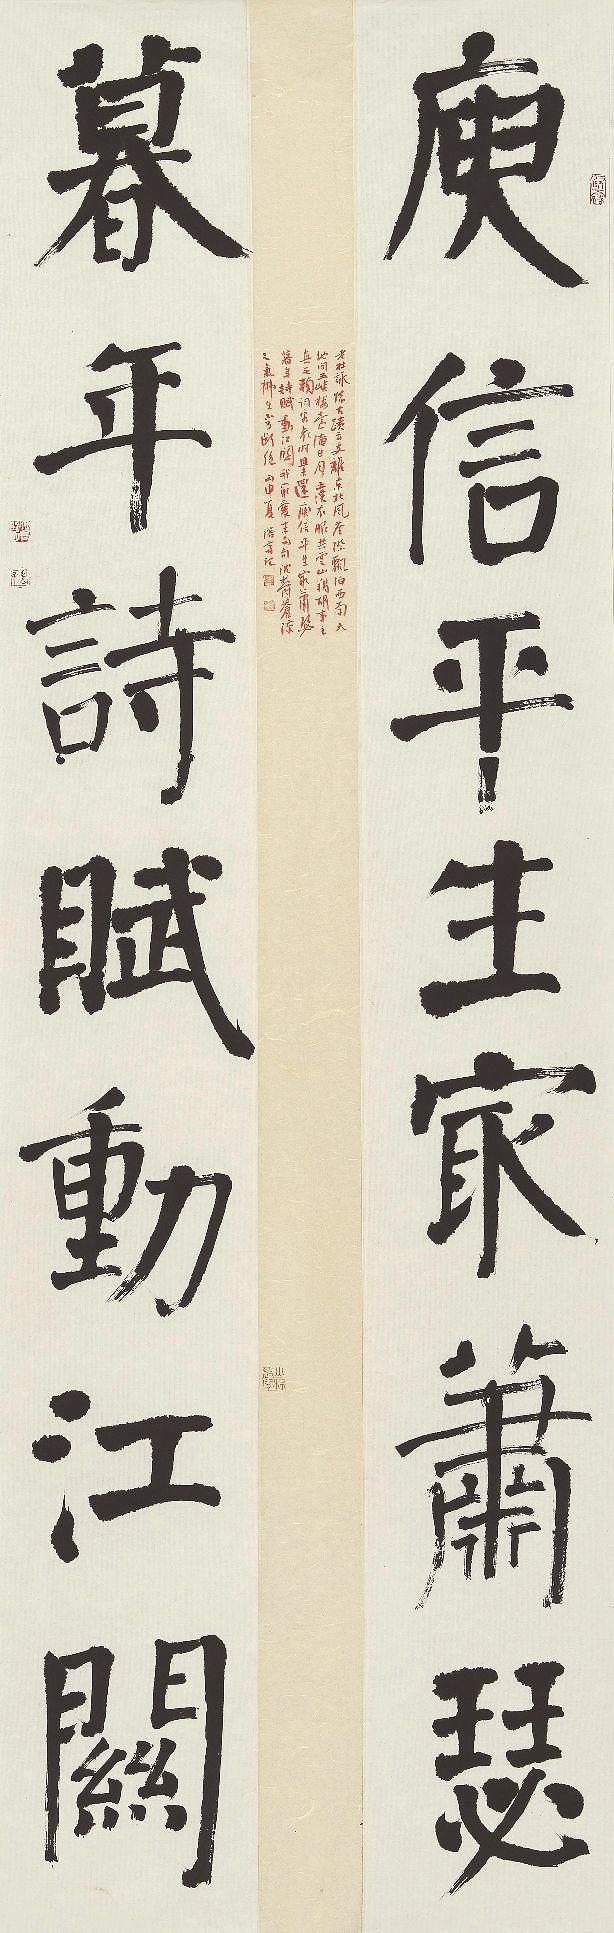 庾信平生㝡蕭瑟
暮年詩賦動江關
老杜詠懷古蹟云支離東北風塵際飄泊西南天
地間三峽樓臺淹日月五溪衣服共雲山羯胡事主
真無賴詞客哀時且未還庾信平生㝡蕭瑟
暮年詩賦動江關我最愛末句沈鬱蒼涼
之氣拂
丙申夏